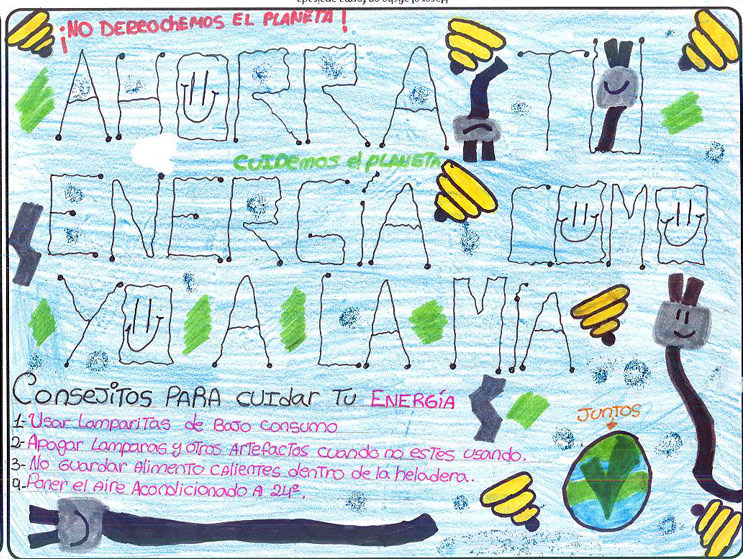 ¡NO DERROCHEMOS EL PLANETA!
AHORRA TU
CUIDEMOS el PLANETA
ENERGÍA COMO
YO A LA MIA
Consejitos PARA cuidar Tu ENERGÍA
1- Usar Lamparitas de Bajo consumo
2- Apagar Lamparas y otros Artefactos cuando no estes usando.
3- No Guardar Alimento calientes dentro de la heladera..
4- Poner el Aire Acondicionado A 24º.
JUNTOS